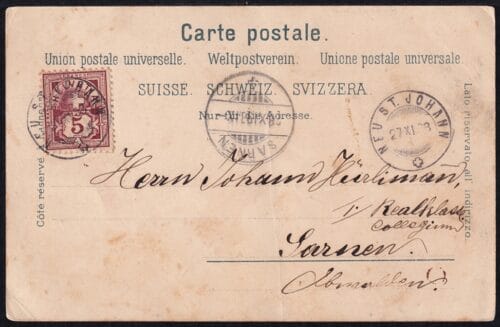 Carte postale.
Union postale universelle. Weltpostverein. Unione postale universale.
SUISSE. SCHWEIZ. SVIZZERA.
Nur für die Adresse.
Côté réservé
Lato riservato all indirizzo
5
SARNEN
NEU ST. JOHANN
27 XI
Herrn Johann Hürliman,
I. Realklasse
Collegium
Sarnen.
Obwalden.